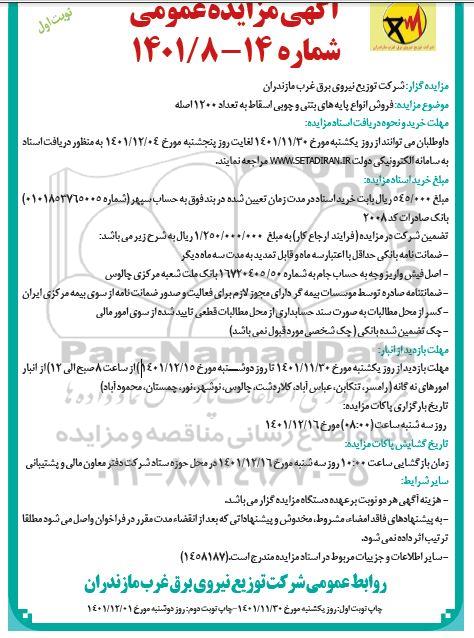 نوبت اول
آگهی مزایده عمومی
شماره ۱۴-۱۴۰۱/۸
شرکت توزیع نیروی برق غرب مازندران
مزایده گزار: شرکت توزیع نیروی برق غرب مازندران
موضوع مزایده: فروش انواع پایه های بتنی و چوبی اسقاط به تعداد ۱۲۰۰ اصله
مهلت خرید و نحوه دریافت اسناد مزایده:
داوطلبان می توانند از روز یکشنبه مورخ ۱۴۰۱/۱۱/۳۰ لغایت روز پنجشنبه مورخ ۱۴۰۱/۱۲/۰۴ به منظور دریافت اسناد
به سامانه الکترونیکی دولت WWW.SETADIRAN.IR مراجعه نمایند.
مبلغ خرید اسناد مزایده:
مبلغ ۵۴۵/۰۰۰ ریال بابت خرید اسناد در مدت زمان تعیین شده در بند فوق به حساب سپهر (شماره ۰۱۰۱۸۵۳۷۶۵۰۰۵)
بانک صادرات کد ۲۰۰۸
تضمین شرکت در مزایده (فرایند ارجاع کار) به مبلغ ۱/۲۵۰/۰۰۰/۰۰۰ ریال به شرح زیر می باشد:
- ضمانت نامه بانکی حداقل با اعتبار سه ماه و قابل تمدید به مدت سه ماه دیگر
- اصل فیش واریز وجه به حساب جام به شماره ۱۶۷۲۰۴۰۵/۵۰ بانک ملت شعبه مرکزی چالوس
- ضمانتنامه صادره توسط موسسات بیمه گر دارای مجوز لازم برای فعالیت و صدور ضمانت نامه از سوی بیمه مرکزی ایران
- کسر از محل مطالبات به صورت سند حسابداری از محل مطالبات قطعی تایید شده از سوی امور مالی
- چک تضمین شده بانکی (چک شخصی مورد قبول نمی باشد)
مهلت بازدید از انبار:
مهلت بازدید از روز یکشنبه مورخ ۱۴۰۱/۱۱/۳۰ تا روز دوشنبه مورخ ۱۴۰۱/۱۲/۱۵ (از ساعت ۸ صبح الی ۱۲) از انبار
امورهای نه گانه (رامسر، تنکابن، عباس آباد، کلاردشت، چالوس، نوشهر، نور، چمستان، محمودآباد)
تاریخ بارگزاری پاکات مزایده:
روز سه شنبه ساعت (۰۸:۰۰) مورخ ۱۴۰۱/۱۲/۱۶
تاریخ گشایش پاکات مزایده:
زمان بازگشایی ساعت ۱۰:۰۰ روز سه شنبه مورخ ۱۴۰۱/۱۲/۱۶ در محل حوزه ستاد شرکت دفتر معاون مالی و پشتیبانی
سایر شرایط:
- هزینه آگهی هر دو نوبت بر عهده دستگاه مزایده گزار می باشد.
- به پیشنهادهای فاقد امضاء، مشروط، مخدوش و پیشنهاداتی که بعد از انقضاء مدت مقرر در فراخوان واصل می شود مطلقا
ترتیب اثر داده نمی شود.
- سایر اطلاعات و جزییات مربوط در اسناد مزایده مندرج است. (۱۴۵۸۱۸۷)
روابط عمومی شرکت توزیع نیروی برق غرب مازندران
چاپ نوبت اول: روز یکشنبه مورخ ۱۴۰۱/۱۱/۳۰-چاپ نوبت دوم: روز دوشنبه مورخ ۱۴۰۱/۱۲/۰۱
ParsNamadData
پایگاه اطلاع رسانی مناقصه و مزایده
۰۲۱-۸۸۳۴۹۶۷۰-۵